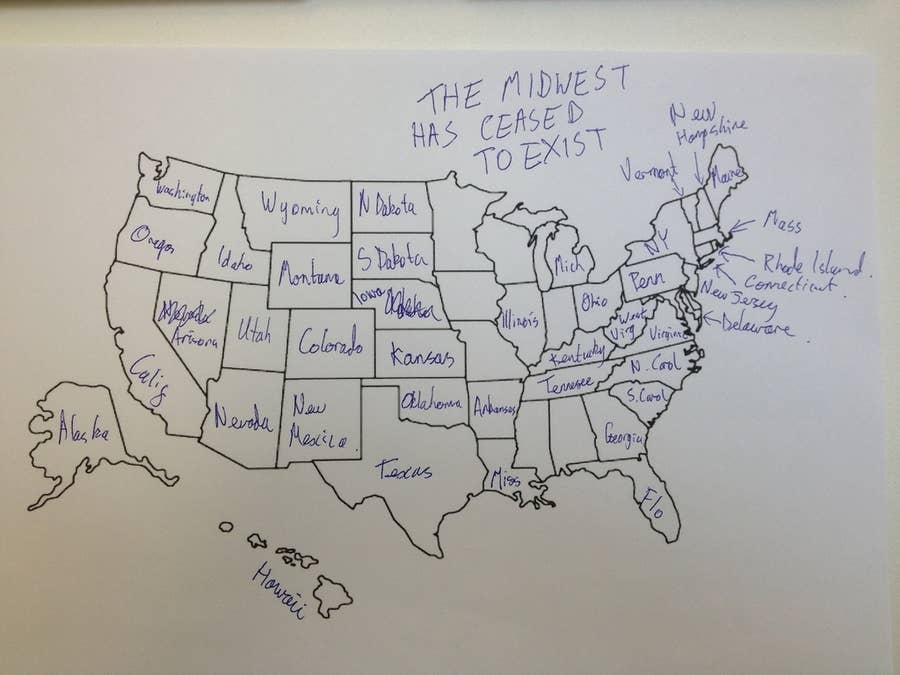 THE MIDWEST
HAS CEASED
TO EXIST
New
Hampshire
Vermont
Maine
Washington
Wyoming
N Dakota
Mass
Oregon
Idaho
Montana
S Dakota
Mich
NY
Rhode Island.
Connecticut.
Penn
New Jersey
Iowa
Illinois
Ohio
West
Virg
Virginia
Delaware
Arizona
Utah
Colorado
Kansas
Kentucky
N. Carol
Calif
Tennesee
S. Carol
Nevada
New
Mexico
Oklahoma
Arkansas
Georgia
Alaska
Texas
Miss
Flo
Hawaii